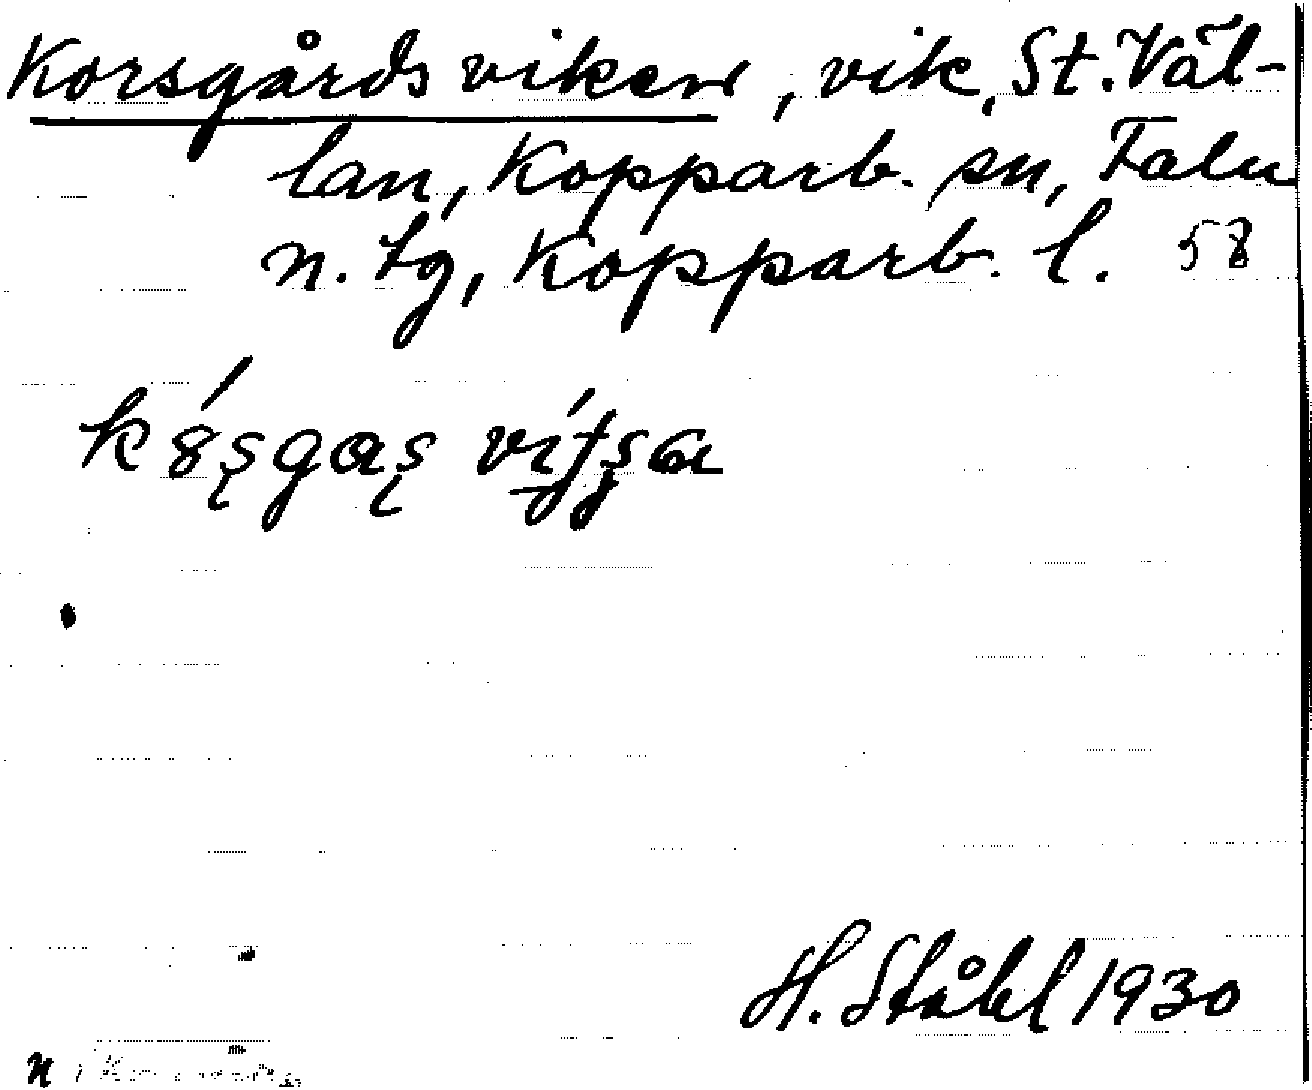 Korsgårdsviken, vik, St. Väl-
lan, Kopparb. sn, Falu
n. tg, Kopparb. l. 58
H. Ståhl 1930